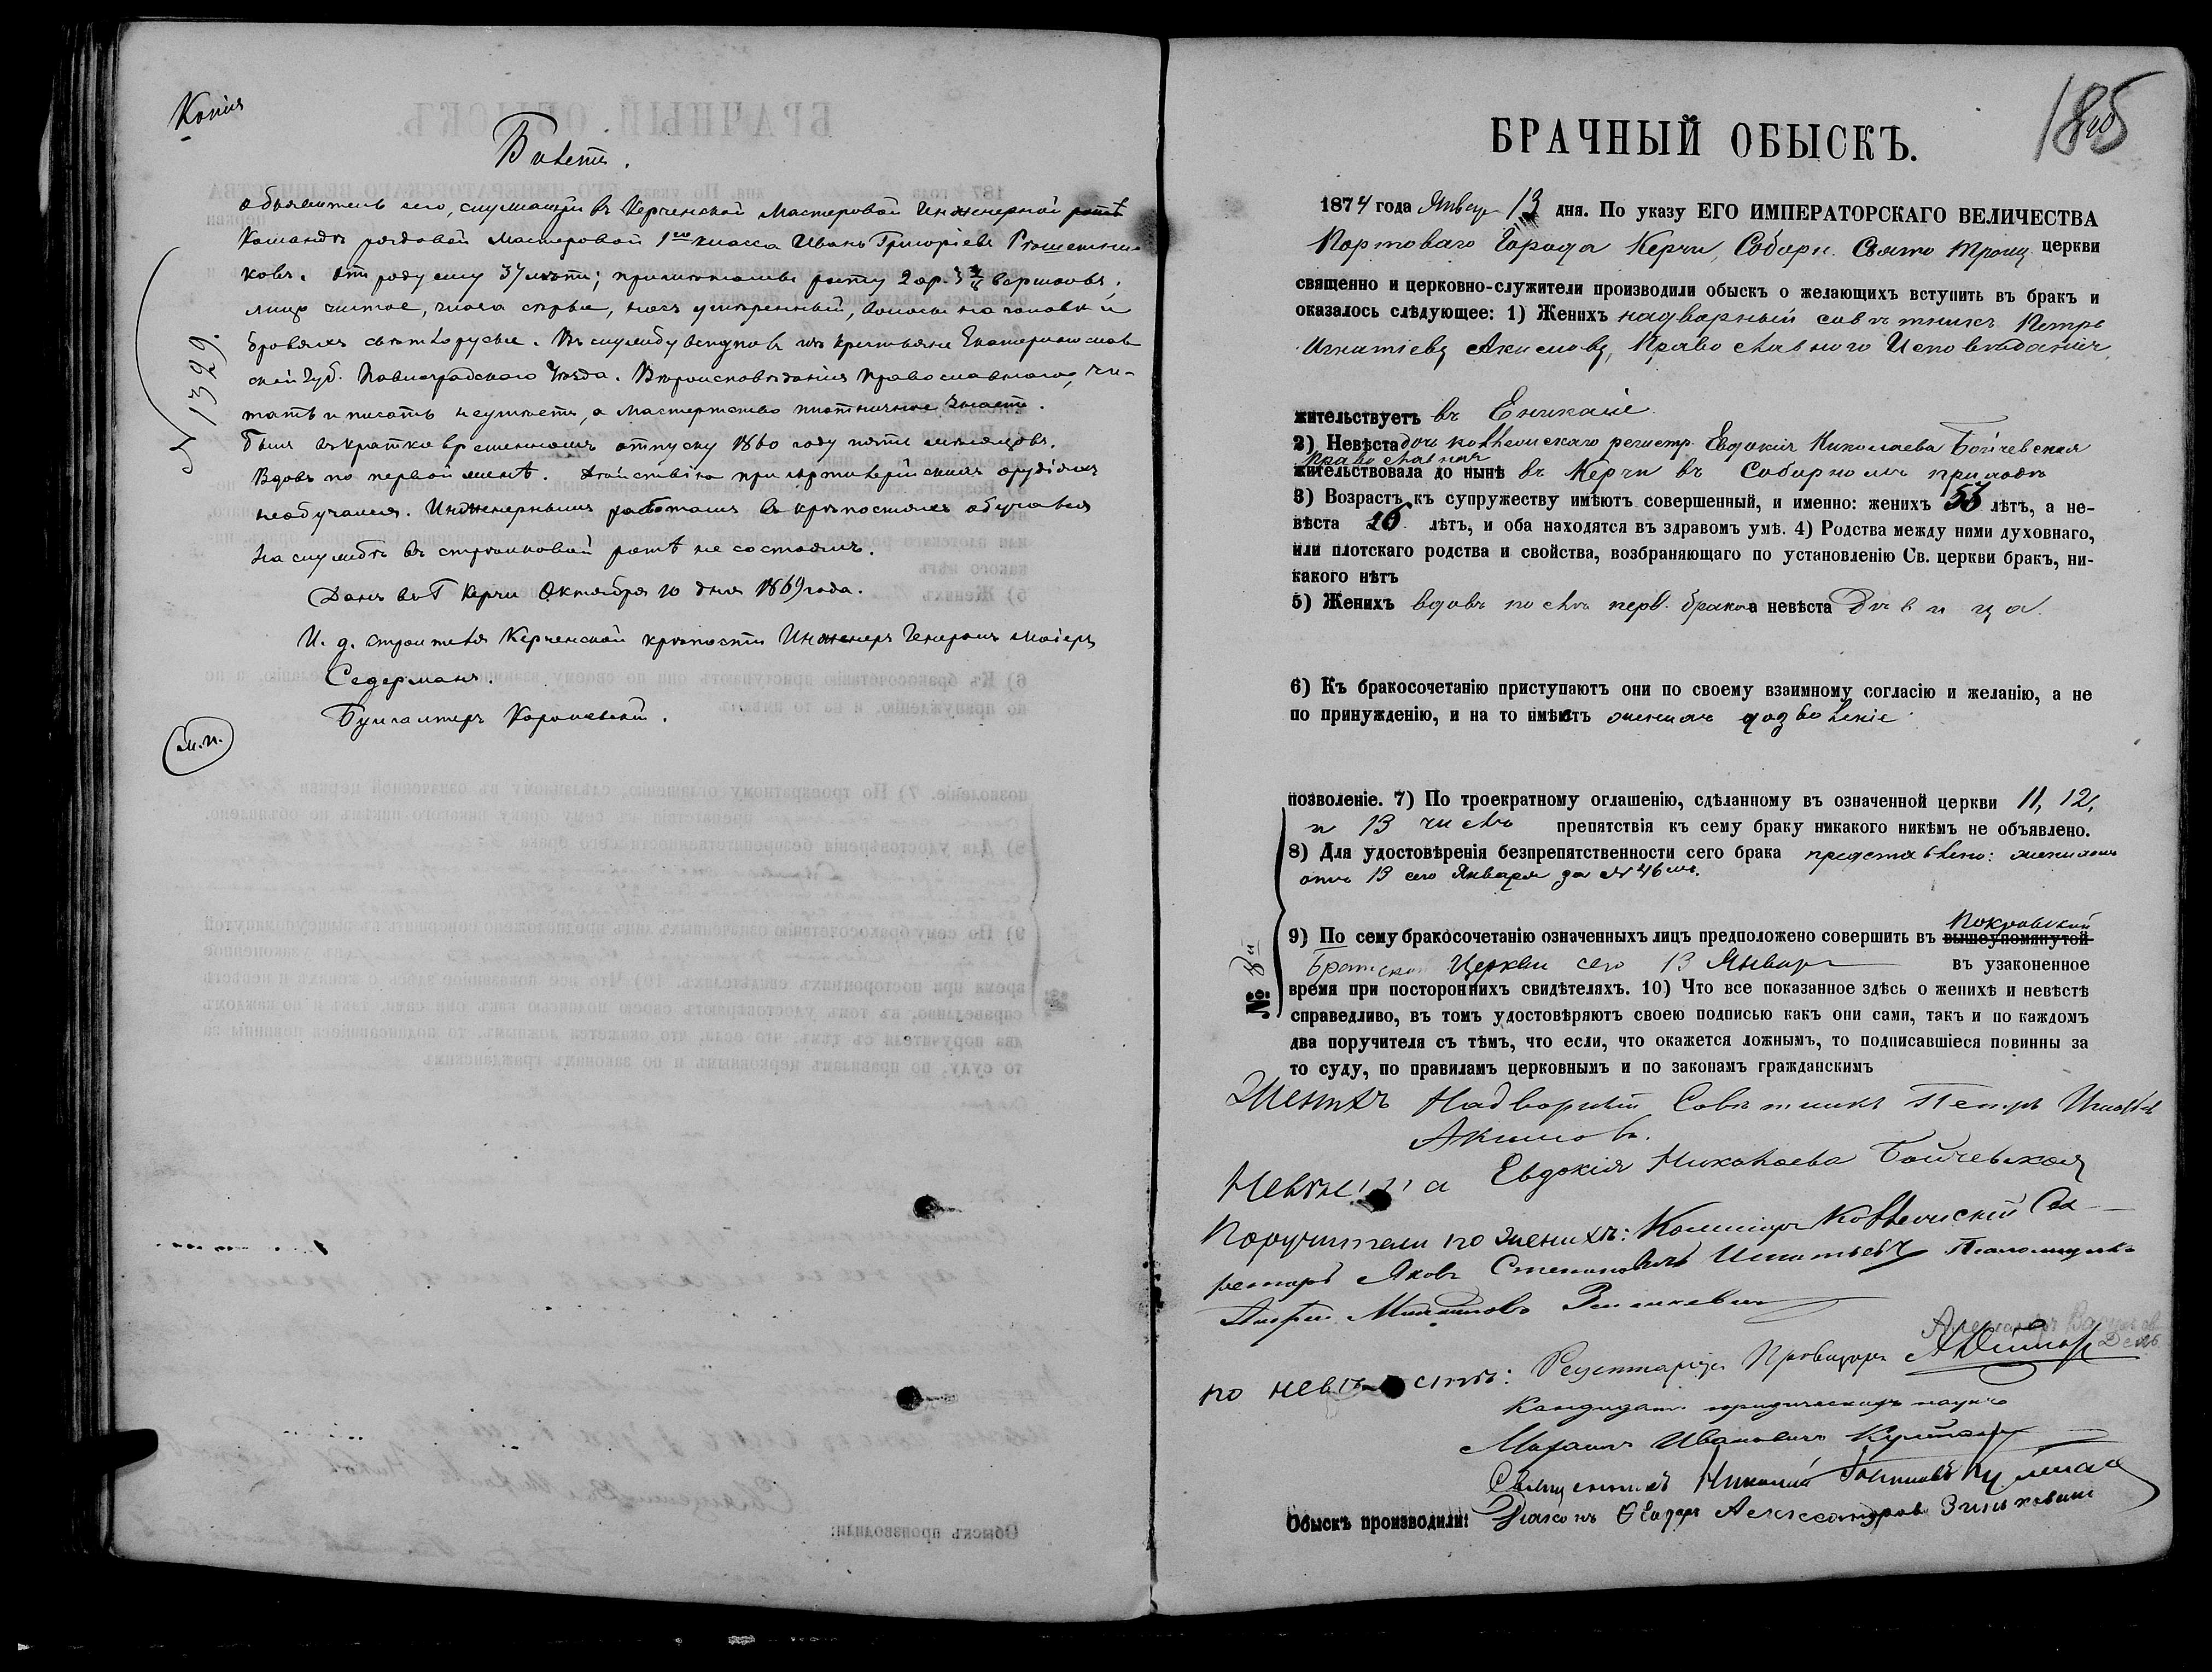 Копія
Билетъ.
объявитель сего, служащій въ Керченской Мастеровой Инженерной
Командѣ рядовой Мастеровой 1го класса Иванъ Григорьевъ Рѣшетни-
ковъ. отъ роду ему 37 лѣтъ; примѣтами: росту 2 ар. 3 вершковъ,
лицо чистое, глаза сѣрые, носъ умѣренный, волосы на головѣ и
бровяхъ свѣтлорусые. Въ службу вступилъ изъ крестьянъ Екатеринослав
ской Губ. Павлоградскаго Уѣзда. Вѣроисповѣданія Православнаго, чи-
тать и писать неумѣетъ, а мастерство плотничное знаетъ.
былъ въ кратковременномъ отпуску 1860 году пять мѣсяцовъ.
Вдовъ по первой женѣ. Дѣйствію при артиллерійскихъ орудіяхъ
необучался. Инженернымъ работамъ въ крѣпостяхъ обучался
на службѣ въ стрѣлковой ротѣ не состоялъ.
Данъ въ Г Керчи Октября 10 дня 1869 года.
И. д. строителя Керченской крѣпости Инженеръ Генералъ Маіоръ
Седерманъ.
Бухгалтеръ
№ 1329.
М.П.
185
БРАЧНЫЙ ОБЫСКЪ.
1874 года Январ 13 дня. По указу ЕГО ИМПЕРАТОРСКАГО ВЕЛИЧЕСТВА
Портоваго Города Керчи, Соборн. Свято Троиц. церкви
священно и церковно-служители производили обыскъ о желающихъ вступить въ бракъ и
оказалось слѣдующее: 1) Женихъ надворный совѣтникъ Петръ
Игнатіевъ Акимовъ, Православного Исповѣданія,
жительствуетъ въ Еникале
2) Невѣста дочь коллежскаго регистр. Евдокія Николаева Бойчевская
Православная
жительствовала до нынѣ въ Керчи въ Соборномъ приходѣ
3) Возрастъ къ супружеству имѣютъ совершенный, и именно: женихъ лѣтъ, а не-
вѣста 26 лѣтъ, и оба находятся въ здравомъ умѣ. 4) Родства между ними духовнаго,
или плотскаго родства и свойства, возбраняющаго по установленію Св. церкви бракъ, ни-
какого нѣтъ
5) Женихъ вдовъ послѣ перв. брака а невѣста Дѣвица
6) Къ бракосочетанію приступаютъ они по своему взаимному согласію и желанію, а не
по принужденію, и на то имѣетъ женихъ дозволеніе
позволеніе. 7) По троекратному оглашенію, сдѣланному въ означенной церкви 11, 12,
и 13 числъ препятствія къ сему браку никакого никѣмъ не объявлено.
8) Для удостовѣренія безпрепятственности сего брака представлено: женихомъ
отъ 13 сего Января за № 46мъ.
9) По сему бракосочетанію означенныхъ лицъ предположено совершить въ вышеупомянутой
Покровской
Братской Церкви сего 13 Января въ узаконенное
время при постороннихъ свидѣтеляхъ. 10) Что все показанное здѣсь о женихѣ и невѣстѣ
справедливо, въ томъ удостовѣряютъ своею подписью какъ они сами, такъ и по каждомъ
два поручителя съ тѣмъ, что если, что окажется ложнымъ, то подписавшіеся повинны за
то суду, по правиламъ церковнымъ и по законамъ гражданскимъ
№
Женихъ Надворный Совѣтникъ Петръ Игнатьев
Акимовъ.
Невѣста Евдокія Николаева Бойчевская
Поручители по женихѣ: Коллежскій Сек-
ретарь Яковъ Степановичъ Игнатьевъ
по невѣстѣ: Провизоръ
Кандидатъ юридическихъ наукъ
Михаилъ Ивановичъ
Священникъ Николай
Обыскъ производили: Діаконъ Ѳеодоръ Александровъ Зиньковичъ